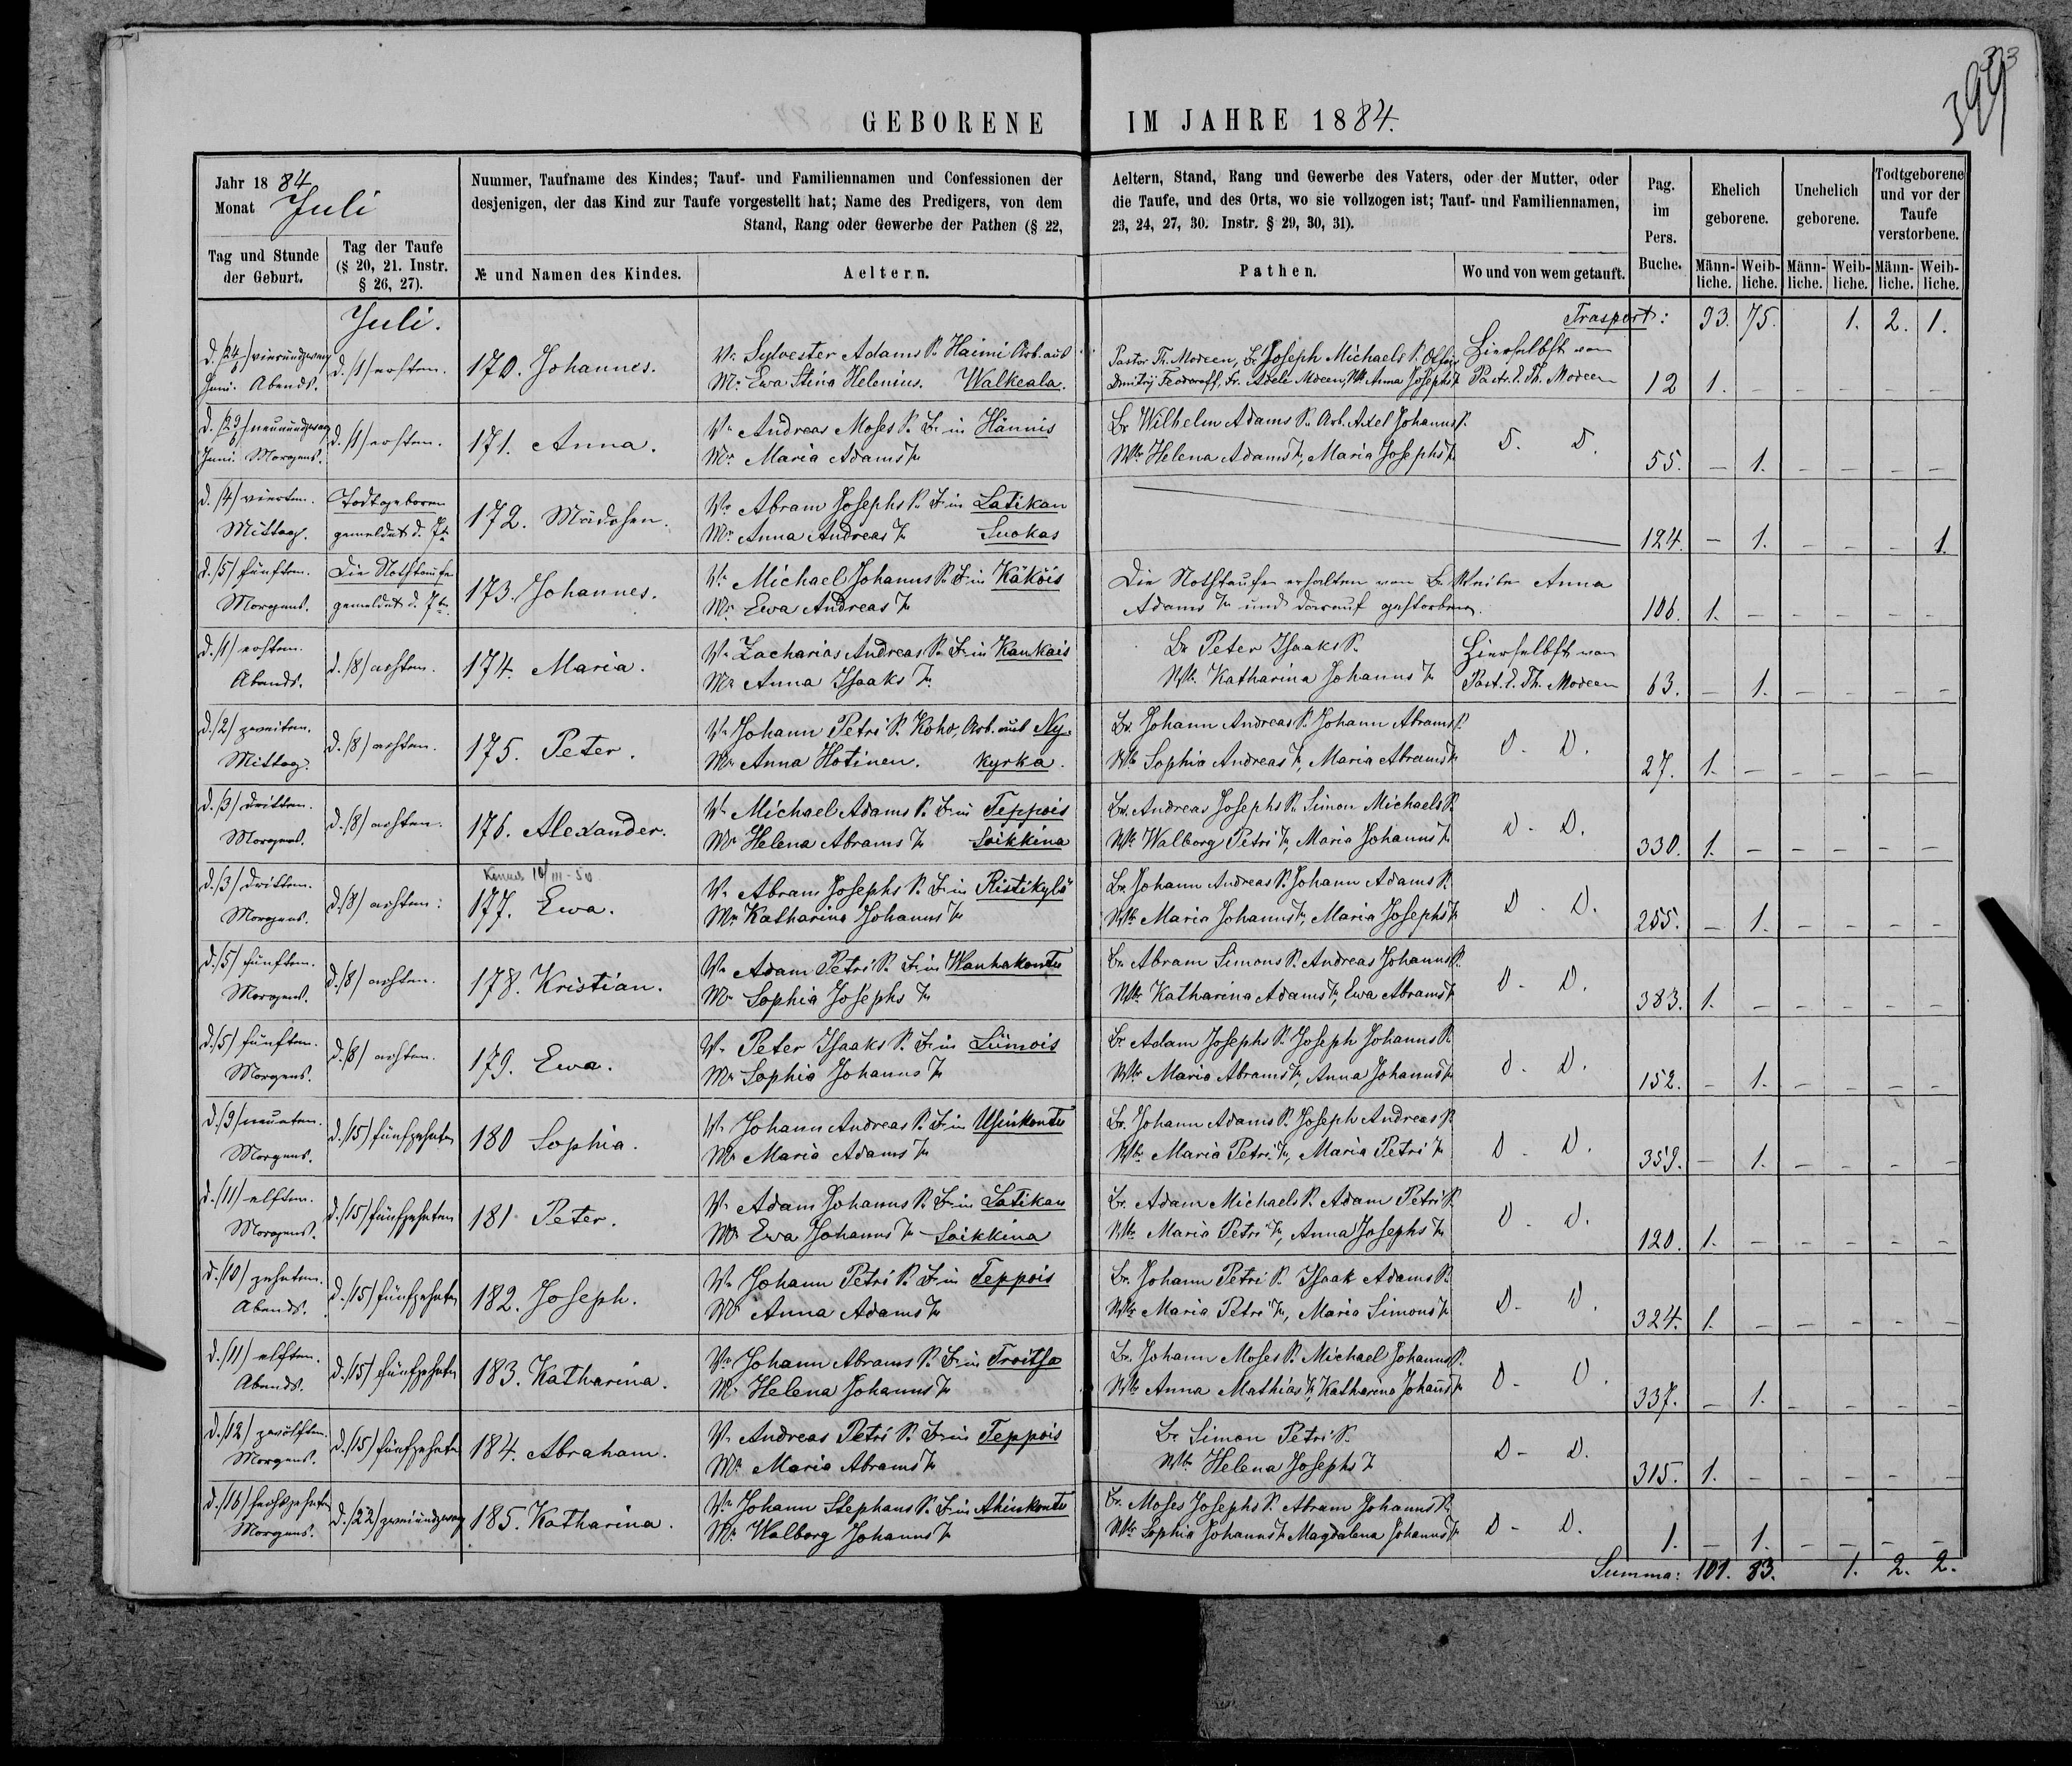 373
399
GEBORENE IM JAHRE 1884.
Jahr 1884
Monat Juli
Nummer, Taufname des Kindes; Tauf- und Familiennamen und Confessionen der Aeltern, Stand, Rang und Gewerbe des Vaters, oder der Mutter, oder
desjenigen, der das Kind zur Taufe vorgestellt hat; Name des Predigers, von dem die Taufe, und des Orts, wo sie vollzogen ist; Tauf- und Familiennamen,
Stand, Rang oder Gewerbe der Pathen (§ 22, 23, 24, 27, 30. Instr. § 29, 30, 31).
Pag. im Pers. Buche.
Ehelich geborene.
Unehelich geborene.
Todtgeborene und vor der Taufe verstorbene.
Tag und Stunde der Geburt.
Tag der Taufe (§ 20, 21. Instr. § 26, 27).
№ und Namen des Kindes.
Aeltern.
Pathen.
Wo und von wem getauft.
Männliche. Weibliche. Männliche. Weibliche. Männliche. Weibliche.
Juli.
Trasport: 93. 75. 1. 2. 1.
d. /24/6 vierundzwanz d. /1/ ersten. 170. Johannes. Vr. Sylvester Adams S. Haimi Arb. aus Pastor Th. Modeen, Br. Joseph Michaels S. Hierselbst von
Juni. Abends. Mr. Ewa Stina Helenius. Walkeala. Dmitrij Feodoroff, Fr. Adele Modeen, Wb. Anna Josephs T. Past. E. Th. Modeen 12 1. – – – – –
d. /29/6 neunundzwanz d. /1/ ersten. 171. Anna. Vr. Andreas Moses S. Br. in Hännis Br. Wilhelm Adams S. Arb. Axel Johanns S.
Juni. Morgens. Mr. Maria Adams T. Wbr. Helena Adams T., Maria Josephs T. D. D. 55. – 1. – – – –
d. /4/ vierten. Todtgeboren 172. Mädchen. Vr. Abram Josephs S. Br. in Latikan
Mittag. gemeldet d. 7t. Mr. Anna Andreas T. Suokas 124. – 1. – – – 1.
d. /5/ fünften. Die Nothtaufe 173. Johannes. Vr. Michael Johanns S. Br. in Käköis Die Nothtaufe erhalten von Br. Weibe Anna
Morgens. gemeldet d. 7t. Mr. Ewa Andreas T. Adams T. und darauf gestorben. 106. 1. – – – – –
d. /1/ ersten. d. /8/ achten. 174. Maria. Vr. Zacharias Andreas S. Br. in Kaukais Br. Peter Isaaks S. Hierselbst von
Abends. Mr. Anna Isaaks T. Wb. Katharina Johanns T. Past. E. Th. Modeen 63. – 1. – – – –
d. /2/ zweiten. d. /8/ achten. 175. Peter. Vr. Johann Petri S. Koho, Arb. aus Ny- Br. Johann Andreas S. Johann Abrams S.
Mittag. Mr. Anna Hotinen. kyrka. Wbr. Sophia Andreas T., Maria Abrams T. D - D. 27. 1. – – – – –
d. /3/ dritten. d. /8/ achten. 176. Alexander. Vr. Michael Adams S. Br. in Teppois Br. Andreas Josephs S. Simon Michaels S.
Morgens. Mr. Helena Abrams T. Soikkina Wbr. Walborg Petri T., Maria Johanns T. D - D. 330. 1. – – – – –
d. /3/ dritten. d. /8/ achten: 177. Ewa. Vr. Abram Josephs S. Br. in Ristikylä Br. Johann Andreas S. Johann Adams S.
Morgens. Mr. Katharina Johanns T. Wbr. Maria Johanns T., Maria Josephs T. D - D. 255. – 1. – – – –
d. /5/ fünften. d. /8/ achten. 178. Kristian. Vr. Adam Petri S. Br. in Wanhakontu Br. Abram Simons S. Andreas Johanns S.
Morgens. Mr. Sophia Josephs T. Wbr. Katharina Adams T., Ewa Abrams T. D - D. 383. 1. – – – – –
d. /5/ fünften. d. /8/ achten. 179. Ewa. Vr. Peter Isaaks S. Br. in Liimois Br. Adam Josephs S. Joseph Johanns S.
Morgens. Mr. Sophia Johanns T. Wbr. Maria Abrams T., Anna Johanns T. D - D. 152. – 1. – – – –
d. /9/ neunten. d. /15/ fünfzehnten 180 Sophia. Vr. Johann Andreas S. Br. in Usinkontu Br. Johann Adams S. Joseph Andreas S.
Morgens. Mr. Maria Adams T. Wbr. Maria Petri T., Maria Petri T. D - D. 359. – 1. – – – –
d. /11/ elften. d. /15/ fünfzehnten 181 Peter. Vr. Adam Johanns S. Br. in Latikan Br. Adam Michaels S. Adam Petri S.
Morgens. Mr. Ewa Johanns T. - Soikkina Wbr. Maria Petri T., Anna Josephs T. D - D. 120. 1. – – – – –
d. /10/ zehnten. d. /15/ fünfzehnten 182. Joseph. Vr. Johann Petri S. Br. in Teppois Br. Johann Petri S. Isaak Adams S.
Abends. Mr. Anna Adams T. Wbr. Maria Petri T., Maria Simons T. D - D. 324. 1. – – – – –
d. /11/ elften. d. /15/ fünfzehnten 183. Katharina. Vr. Johann Abrams S. Br. in Troitsa Br. Johann Moses S. Michael Johanns S.
Abends. Mr. Helena Johanns T. Wbr. Anna Mathias T., Katharina Johanns T. D - D. 337. – 1. – – – –
d. /12/ zwölften. d. /15/ fünfzehnten 184. Abraham. Vr. Andreas Petri S. Br. in Teppois Br. Simon Petri S.
Morgens. Mr. Maria Abrams T. Wb. Helena Josephs T. D - D. 315. 1. – – – – –
d. /16/ sechszehnten d. /22/ zweiundzwanz 185. Katharina. Vr. Johann Stephans S. Br. in Ahinkontu Br. Moses Josephs S. Abram Johanns S.
Morgens. Mr. Walborg Johanns T. Wbr. Sophia Johanns T. Magdalena Johanns T. D - D. 1. – 1. – – – –
Summa: 101. 83. 1. 2. 2.